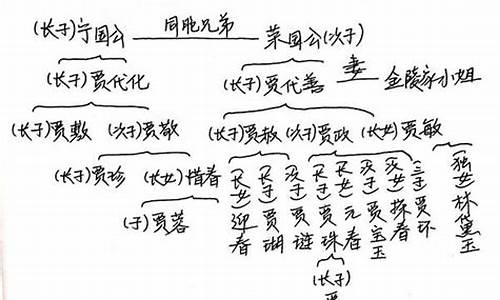 (长子)宁国公 同胞兄弟 荣国公(次子)
(长子)贾代化 (长子)贾代善 妻 金陵家小姐
(长子)贾敷 (次子)贾敬 (长子)贾赦 (次子)贾政 (长女)贾敏
(长子)贾珍 (长女)惜春
(子)贾蓉
(长女)迎春
(长子)贾瑚
(次子)贾琏
(长子)贾珠
(长女)元春
(次子)贾宝玉
(次女)探春
(三子)贾环
(独女)林黛玉
(长子)